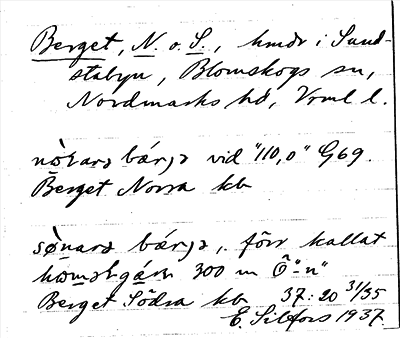 Berget, N. o. S., hmdr i Sund-
stabyn, Blomskogs sn,
Nordmarks hd, Vrml l.
nòrarə bǽrjə vid "110,0" G69.
Berget Norra kb
sø̀narə bǽrjə, förr kallat
300 m Ö "-n"
Berget Södra kb 37:20 31/35
E. Silfors 1937.